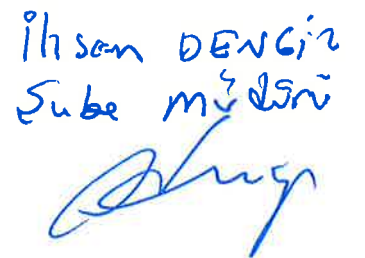 İhsan DENGİZ
Şube Müdürü